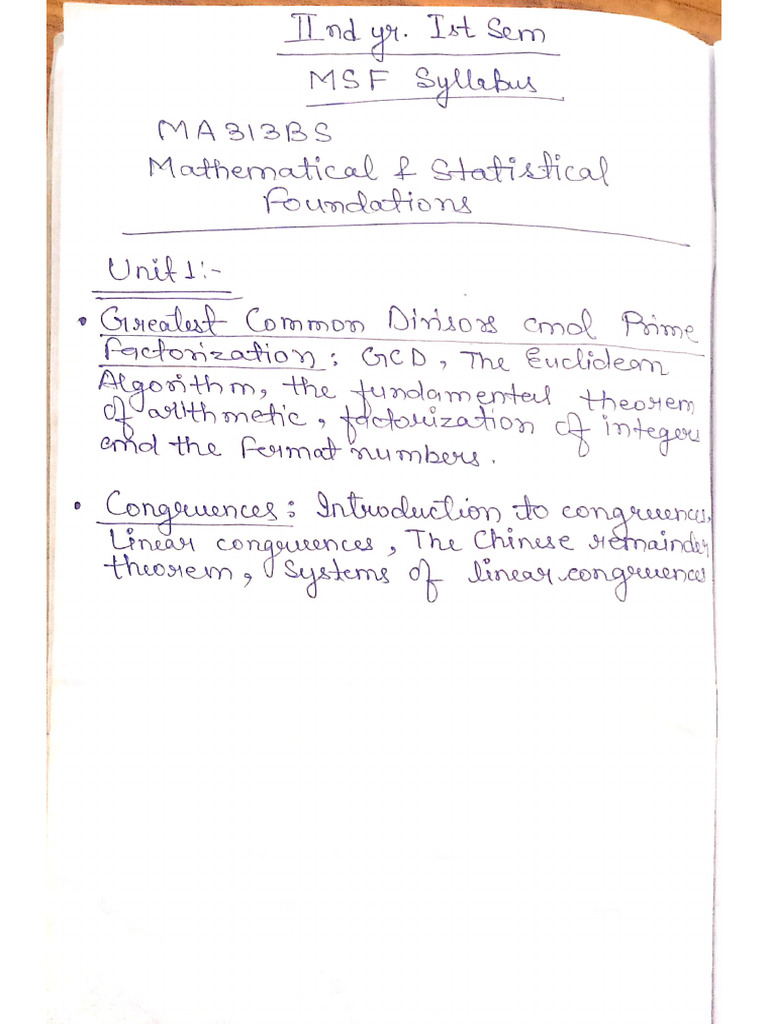 IInd yr. Ist Sem
MSF Syllabus
MA313BS
Mathematical & Statistical
Foundations
Unit 1:-
• Greatest Common Divisors and Prime
Factorization: GCD, The Euclidean
Algorithm, the fundamental theorem
of arithmetic, factorization of integers
and the Fermat numbers.
• Congruences: Introduction to congruences,
Linear congruences, The Chinese remainder
theorem, Systems of linear congruences